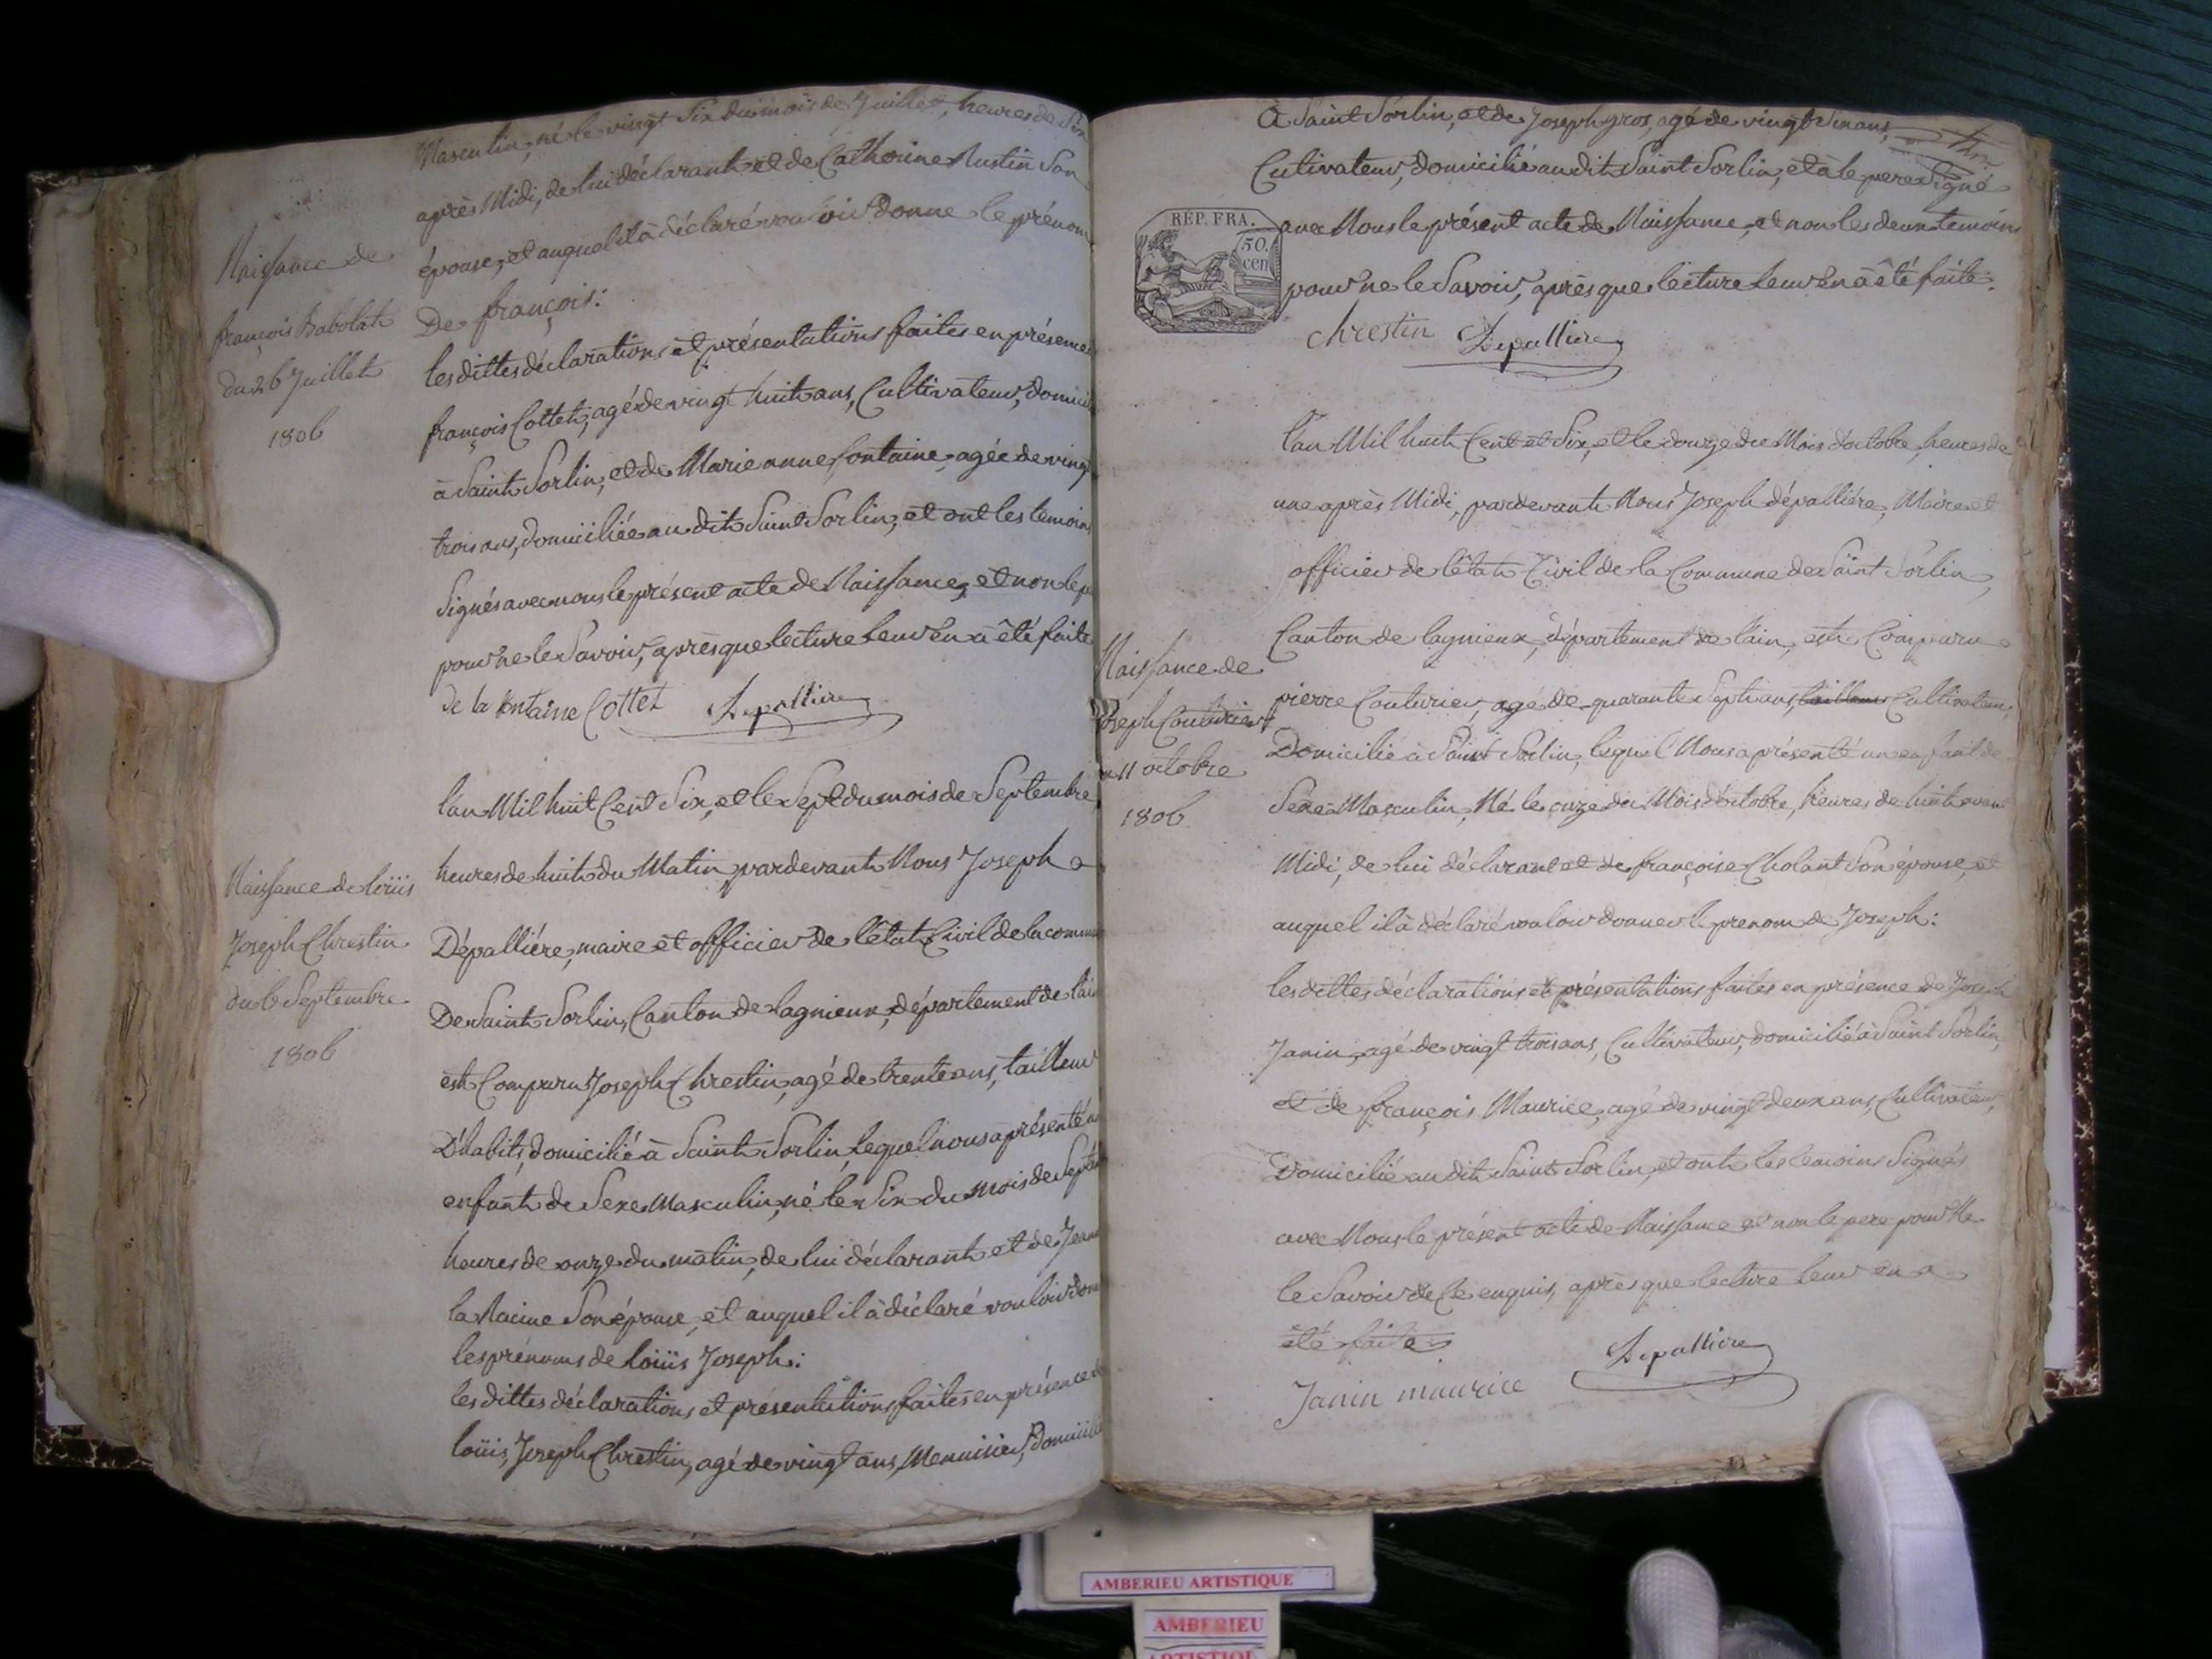 Masculin, né le vingt Six du mois de Juillet, heures de Six
après Midi, de lui déclarant et de Catherine Rustin Son
épouse, et auquel il à déclaré vouloir donne le prénom
De françois:
Naissance de
françois Babolat
du 26 Juillet
1806
les dittes déclarations et présentations faites en présence
françois Cottet, agé de vingt huit ans, Cultivateur, domici
à Saint Sorlin, et de Marie anne fontaine, agée de vingt
trois ans, domiciliée au dit Saint Sorlin, et ont les temoins
Signés avec nous le présent acte de Naissance, et non le p
pour ne le Savoir, après que lecture leur en à été faite
de la fontaine Cottet Depalliere
lan Mil huit Cent Six, et le Sept du mois de Septembre,
heures de huit du Matin, pardevant Nous Joseph
Dépalliére, maire et officier de l'état Civil de la commune
De Saint Sorlin, Canton de lagnieux, département de l'ain
est Comparu Joseph Chrestin, agé de trente ans, tailleur
D'habits, domicilié à Saint Sorlin, lequel nous a présenté u
enfant de Sexe Masculin, né le Six du mois de Septem
heures de onze du matin, de lui déclarant et de Jeanne
la Racine Son épouse, et auquel il à déclaré vouloir donn
les prénoms de loüis Joseph:
Naissance de loüis
Joseph Chrestin
du 6 Septembre
1806
les dittes déclarations et présentations faites en présence d
loüis Joseph Chrestin, agé de vingt ans, Menuisier, domicilié
à Saint Sorlin, et de Joseph gros, agé de vingt Six ans,
Cutivateur, domicilié au dit Saint Sorlin, et à le pere Signé
avec Nous le présent acte de Naissance, et non les deux temoins
pour ne le Savoir, après que lecture leur en à été faite.
RÉP. FRA.
50.
cen
chrestin Depalliere
l'an Mil huit Cent et Six, et le douze du Mois d'octobre, heures de
une après Midi, pardevant Nous Joseph dépalliére, Maire et
officier de l'état Civil de la Commune de Saint Sorlin,
Canton de lagnieux, département de l'ain, est Comparu
pierre Couturier, agé de quarante Sept ans, tailleur Cultivateur,
Domicilié à Saint Sorlin, lequel Nous a présenté un enfant de
Sexe Masculin, Né le onze du Mois d'octobre, heures de huit avant
Midi, de lui déclarant et de françoise Cholant Son épouse, et
auquel il à déclaré vouloir donner le prenom de Joseph:
Naissance de
Joseph Couturier
du 11 octobre
1806
les dittes déclarations et présentations faites en présence de Joseph
Janin, agé de vingt trois ans, Cultivateur, domicilié à Saint Sorlin,
et de françois Maurice, agé de vingt deux ans, Cultivateur,
Domicilié au dit Saint Sorlin, et ont les temoins Signés
avec Nous le présent acte de Naissance et non le pere pour Ne
le Savoir de Ce enquis, après que lecture leur en a
été faite
Janin maurice Depalliere
AMBERIEU ARTISTIQUE
AMBERIEU
ARTISTIQUE